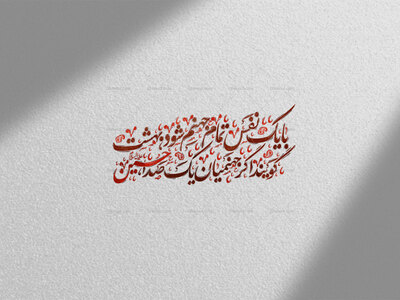 با یک نفس تمام جهنم شود بهشت
گویند اگر جهنمیان یک صدا حسین